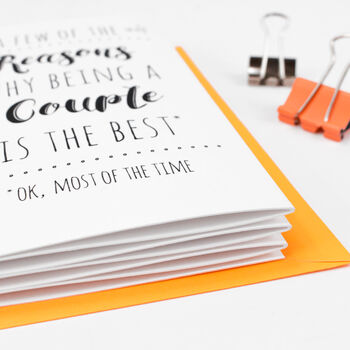 FEW OF THE
Reasons
HY BEING A
Couple
IS THE BEST*
*OK, MOST OF THE TIME